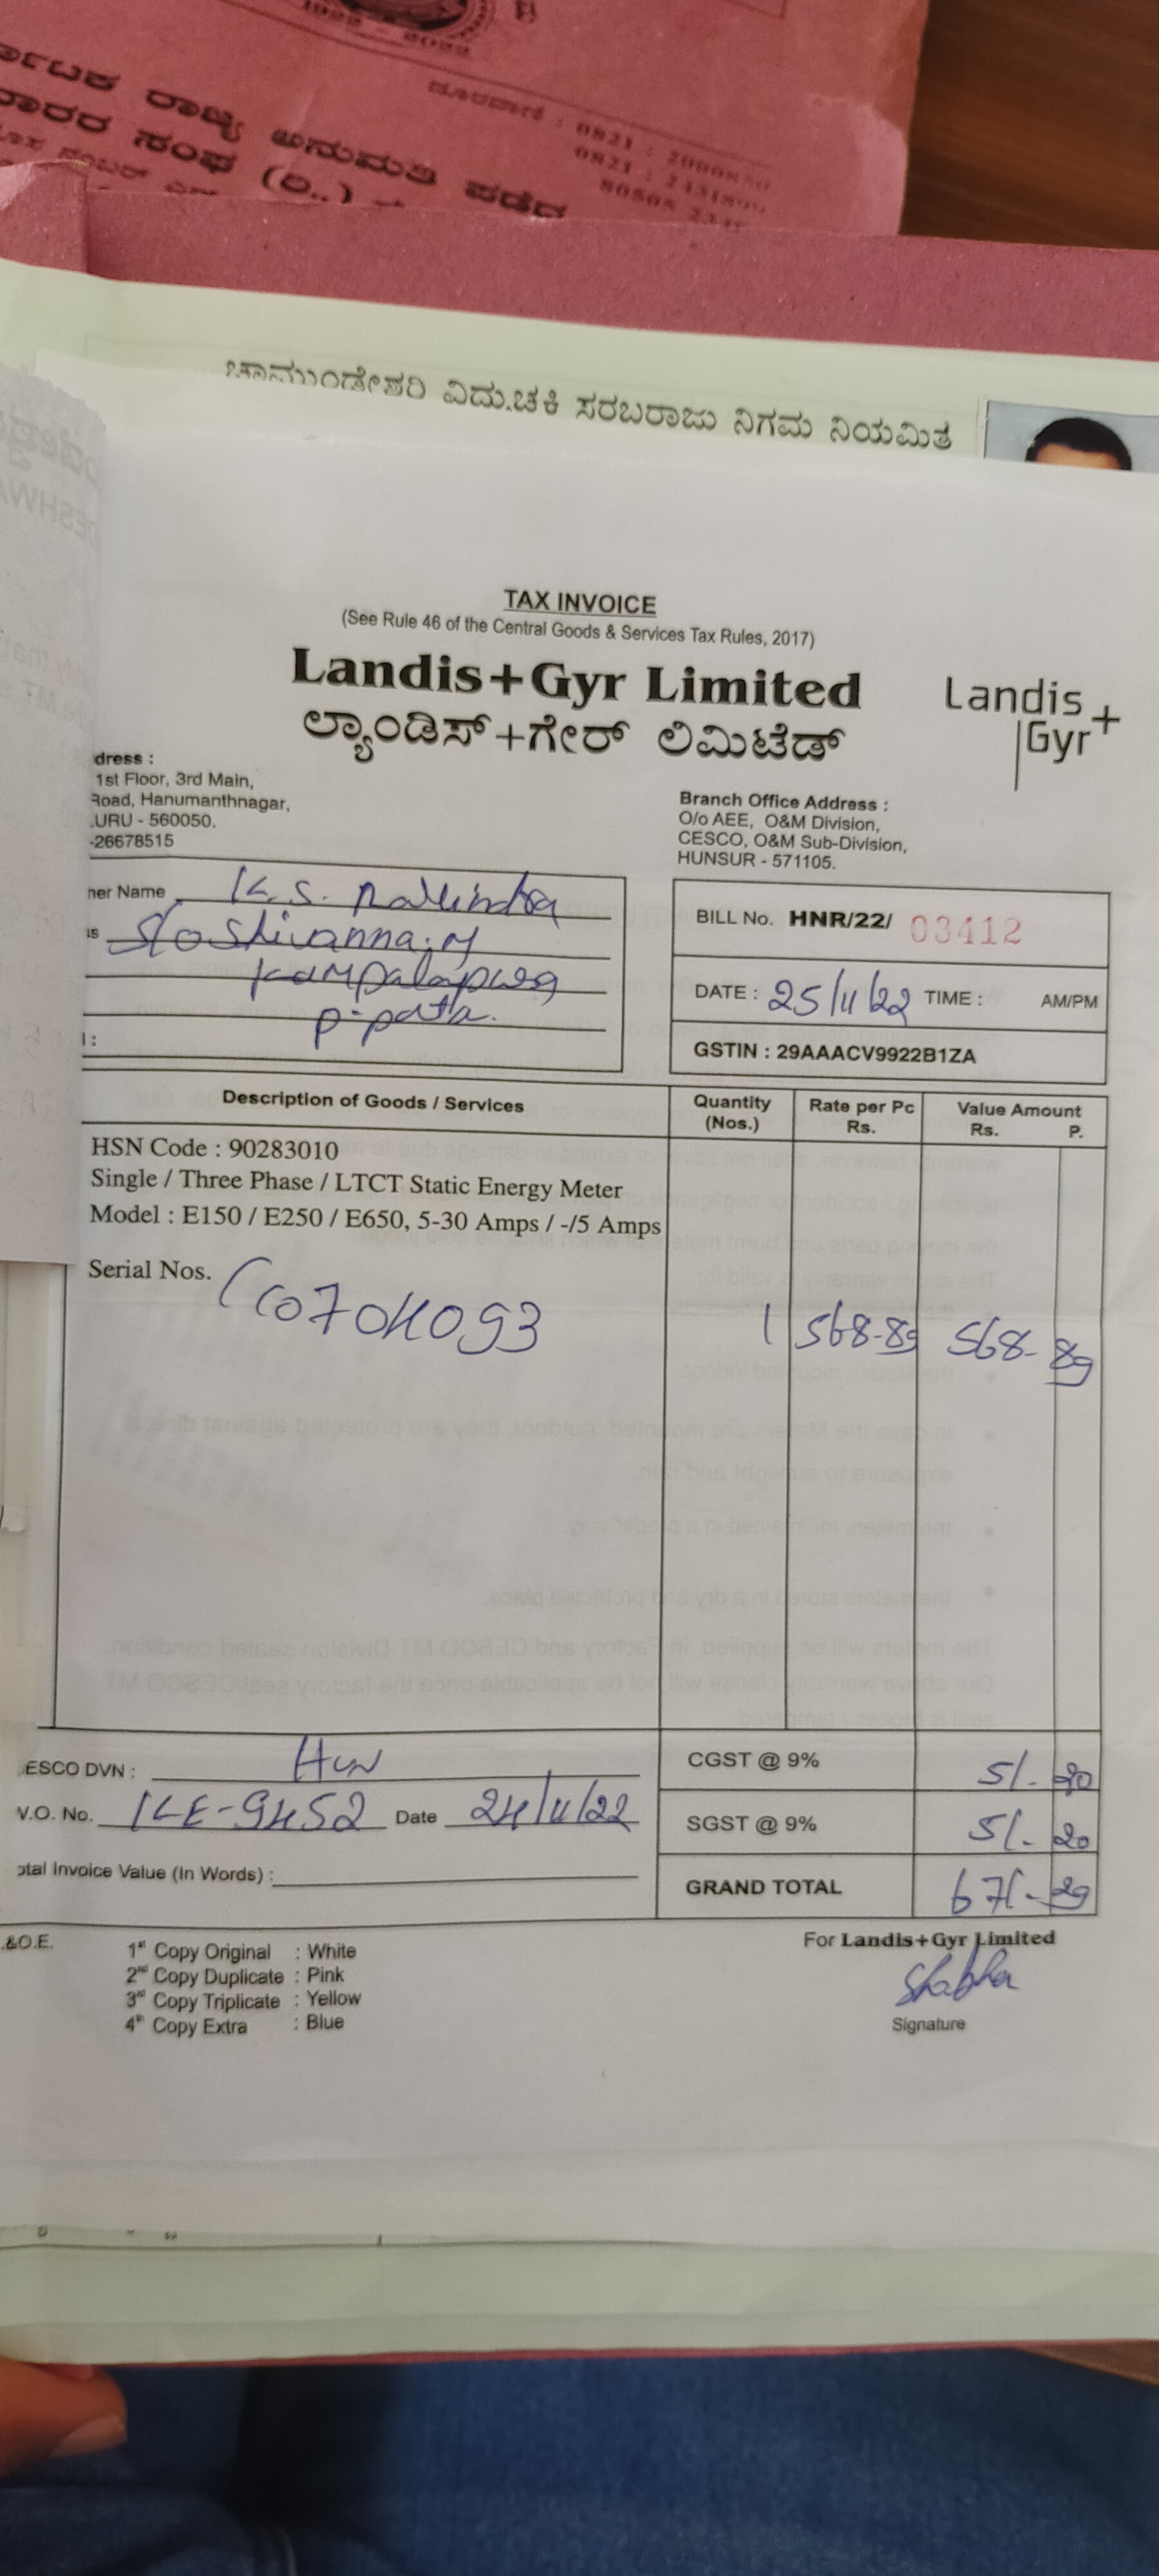 1922 - 2022
ರಾಜ್ಯ ಅನುಮತಿ ಪಡೆದ
ಸಂಘ (ರಿ..)
ದೂರವಾಣಿ : 0821 :
0821 :
80505
ಚಾಮುಂಡೇಶ್ವರಿ ವಿದ್ಯುಚ್ಛಕ್ತಿ ಸರಬರಾಜು ನಿಗಮ ನಿಯಮಿತ
TAX INVOICE
(See Rule 46 of the Central Goods & Services Tax Rules, 2017)
Landis+Gyr Limited
ಲ್ಯಾಂಡಿಸ್+ಗೇರ್ ಲಿಮಿಟೆಡ್
Landis
Gyr+
dress :
1st Floor, 3rd Main,
Road, Hanumanthnagar,
URU - 560050.
-26678515
Branch Office Address :
O/o AEE, O&M Division,
CESCO, O&M Sub-Division,
HUNSUR - 571105.
ner Name K.S.
S/o Shivanna.M
p-pata.
BILL No. HNR/22/ 03412
DATE : 25/11/22 TIME : AM/PM
GSTIN : 29AAACV9922B1ZA
Description of Goods / Services
Quantity (Nos.)
Rate per Pc Rs.
Value Amount Rs. P.
HSN Code : 90283010
Single / Three Phase / LTCT Static Energy Meter
Model : E150 / E250 / E650, 5-30 Amps / -/5 Amps
Serial Nos.
1 568-89 568-89
ESCO DVN : Hun
CGST @ 9% 51-20
W.O. No. KE-9452 Date 24/11/22
SGST @ 9% 51-20
otal Invoice Value (In Words) :
GRAND TOTAL 671-29
.&O.E.
1st Copy Original : White
2nd Copy Duplicate : Pink
3rd Copy Triplicate : Yellow
4th Copy Extra : Blue
For Landis+Gyr Limited
Signature